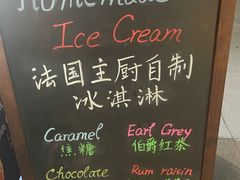 Homemade
Ice Cream
法国主厨自制
冰淇淋
Caramel Earl Grey
焦糖 伯爵红茶
Chocolate Rum raisin